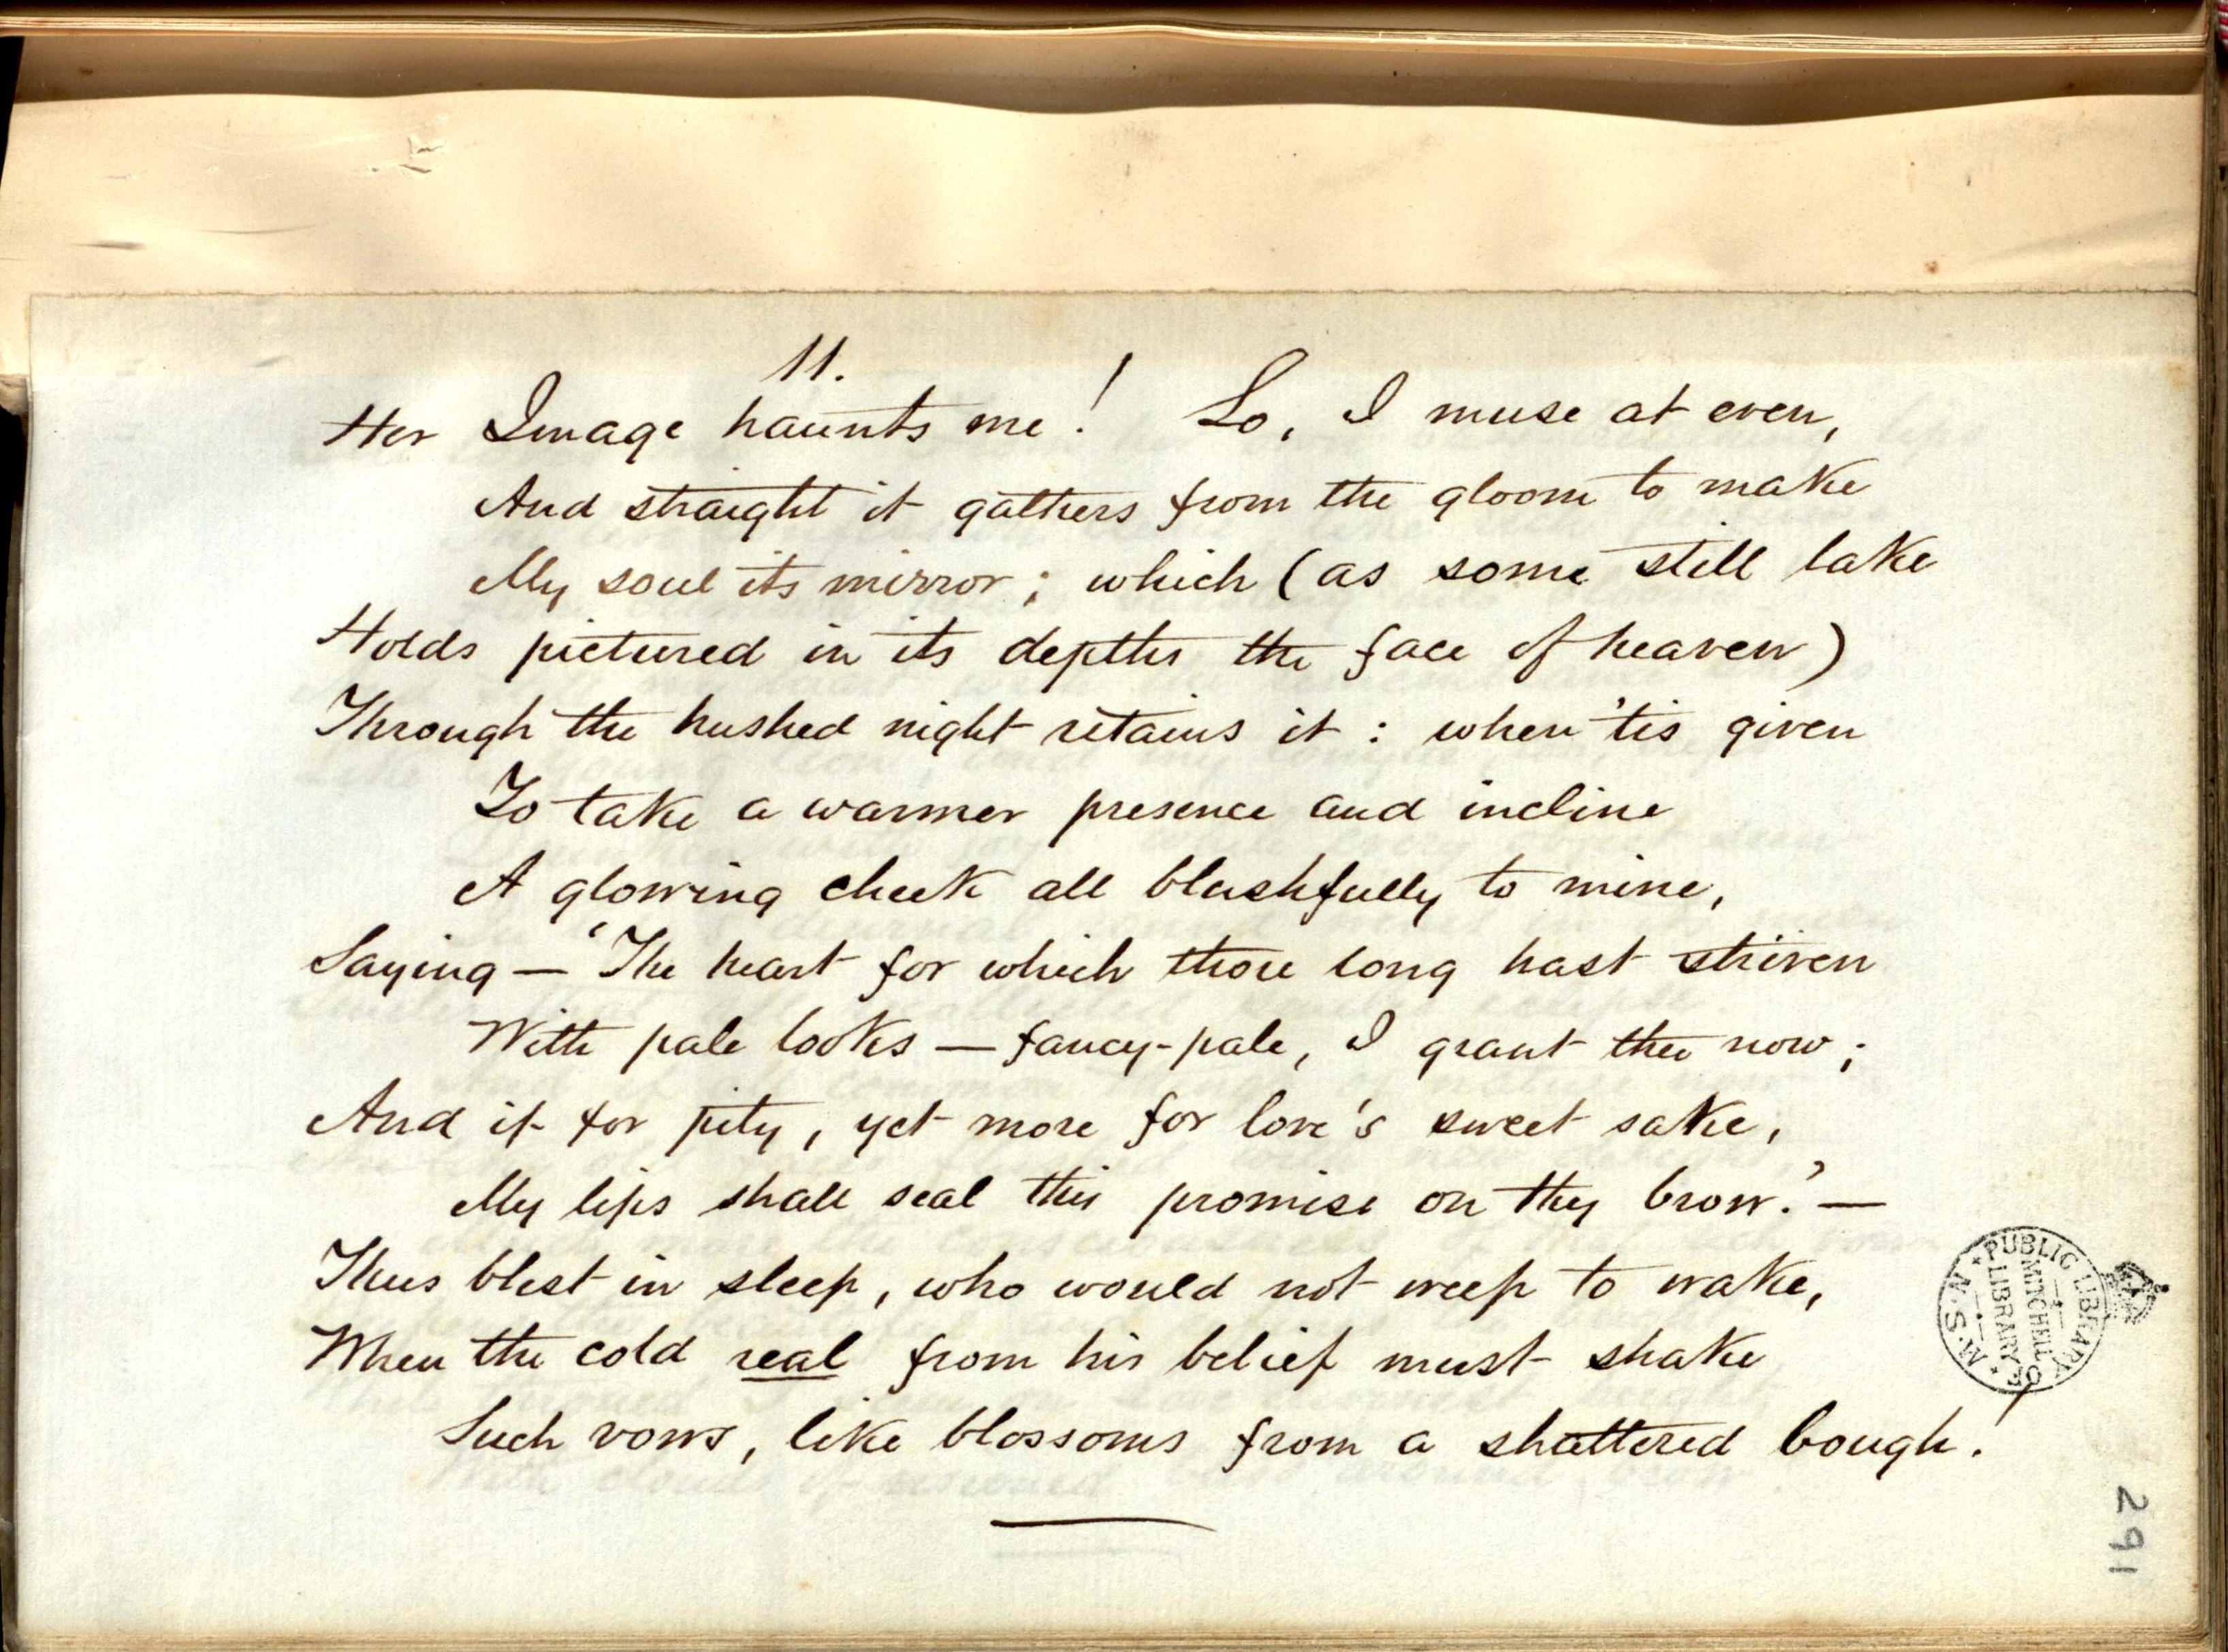 11.
Her Image haunts me! Lo, I muse at even,
And straight it gathers from the gloom to make
My soul its mirror; which (as some still lake
Holds pictured in its depths the face of heaven)
Through the hushed night retains it: when 'tis given
To take a warmer presence and incline
A glowing cheek all blushfully to mine,
Saying — 'The heart for which thou long hast striven
With pale looks — fancy-pale, I grant thee now;
And if for pity, yet more for love's sweet sake,
My lips shall seal this promise on thy brow.' —
Thus blest in sleep, who would not weep to wake,
When the cold real from his belief must shake
Such vows, like blossoms from a shattered bough!
PUBLIC LIBRARY OF N.S.W.
MITCHELL
LIBRARY
291